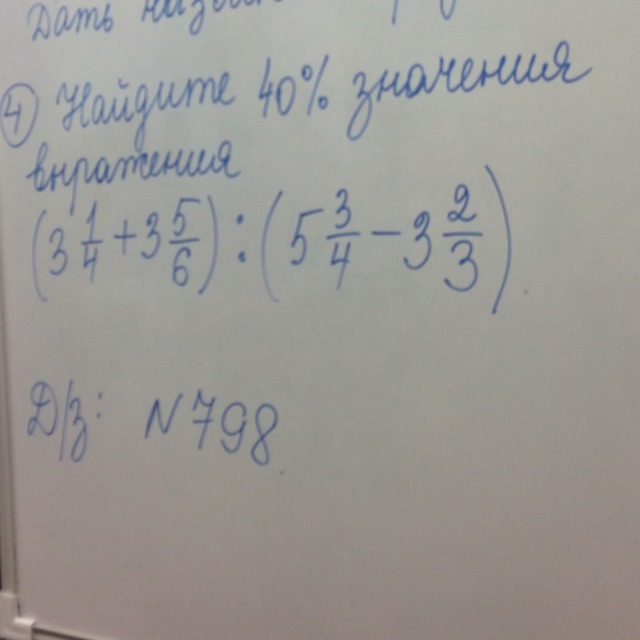 Дать
④ Найдите 40% значения
выражения
(3 1/4 + 3 5/6) : (5 3/4 - 3 2/3)
Д/з: N 798